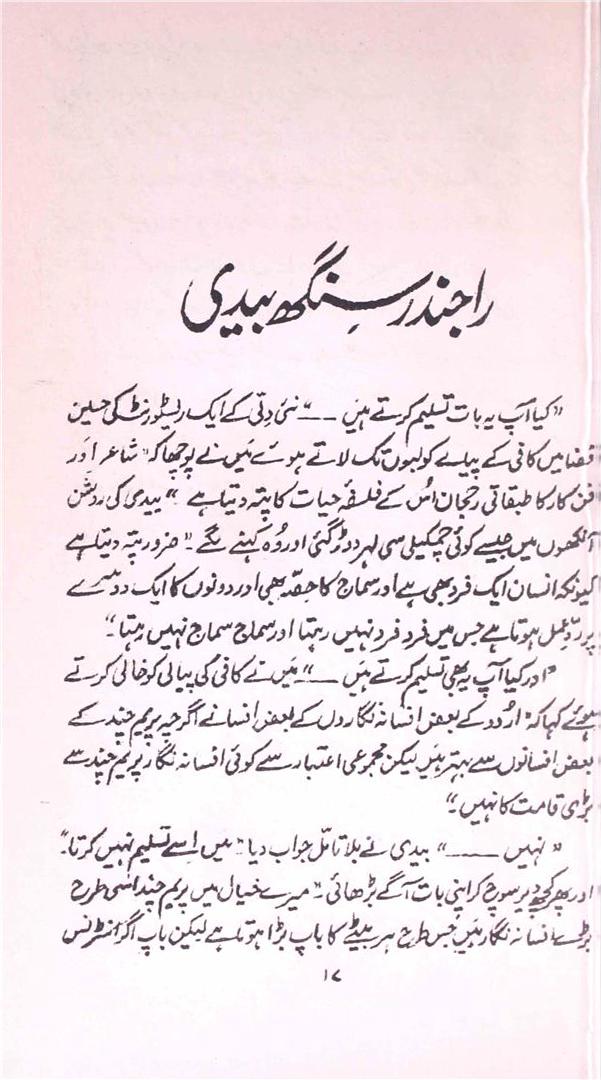 راجندر سنگھ بیدی
"کیا آپ یہ بات تسلیم کرتے ہیں ــــ" نئی دِلّی کے ایک ریسٹورنٹ کی حسین
فضا میں کافی کے پیالے کو لبوں تک لاتے ہوئے میں نے پوچھا کہ "شاعر اور
فن کار کا طبقاتی رجحان اُس کے فلسفۂ حیات کا پتہ دیتا ہے۔" بیدی کی روشن
آنکھوں میں جیسے کوئی چمکیلی سی لہر دوڑ گئی اور وُہ کہنے لگے۔ "ضرور پتہ دیتا ہے
کیونکہ انسان ایک فرد بھی ہے اور سماج کا حصّہ بھی اور دونوں کا ایک دوسرے
پر ردِّ عمل ہوتا ہے جس میں فرد فرد نہیں رہتا اور سماج سماج نہیں رہتا۔"
"اور کیا آپ یہ بھی تسلیم کرتے ہیں ــــ" میں نے کافی کی پیالی کو خالی کرتے
ہوئے کہا کہ "اُردو کے بعض افسانہ نگاروں کے بعض افسانے اگرچہ پریم چند کے
بعض افسانوں سے بہتر ہیں لیکن مجموعی اعتبار سے کوئی افسانہ نگار پریم چند سے
بڑی قامت کا نہیں۔"
"نہیں ــــ" بیدی نے بلا تامّل جواب دیا۔ "میں اِسے تسلیم نہیں کرتا۔"
اور پھر کچھ دیر سوچ کر اپنی بات آگے بڑھائی۔ "میرے خیال میں پریم چند اسی طرح
بڑے افسانہ نگار ہیں جس طرح ہر بیٹے کا باپ بڑا ہوتا ہے لیکن باپ اگر انٹرنس
۱۷